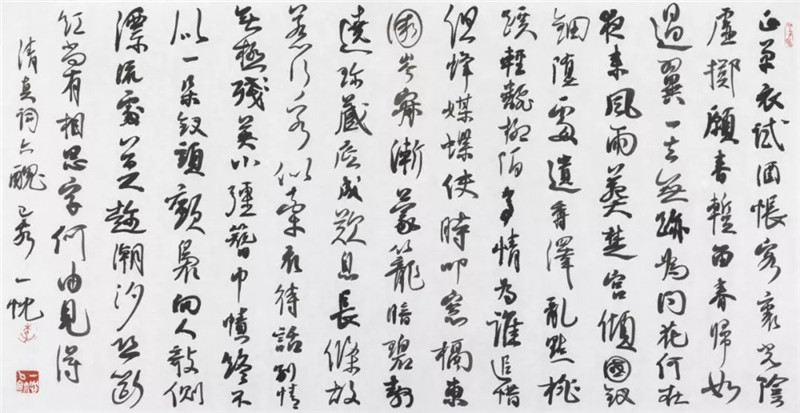 正單衣試酒悵客裏光陰
虛擲願春暫留春歸如
過翼一去無跡為问花何在
夜来風雨葬楚宮傾國釵
鈿墮處遺香澤亂點桃
蹊輕翻柳陌多情為誰追惜
但蜂媒蝶使時叩窓槅東
園岑寂漸蒙籠暗碧靜
遶珍藏底成歎息長條故
惹行客似牽衣待話别情
無極殘英小強簪巾幘終不
似一朵釵頭顫裊向人欹側
漂流處莫趁潮汐恐斷
紅尚有相思字何由見得
清真詞六醜 己亥 一忱